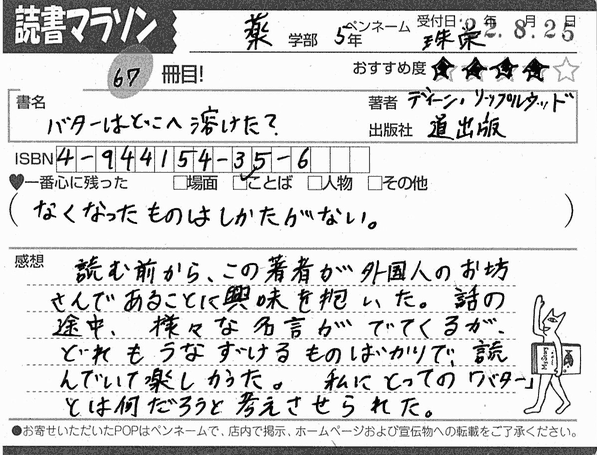 読書マラソン
薬 学部 5年 ペンネーム 珠栄 受付日: 22年 8月 25日
67 冊目!
おすすめ度 ★★★★☆
書名
バターはどこへ溶けた?
著者 ディーン・リップルウッド
出版社 道出版
ISBN 4-944154-35-6
♥一番心に残った □場面 ☑ことば □人物 □その他
(なくなったものはしかたがない。)
感想
読む前から、この著者が外国人のお坊
さんであることに興味を抱いた。話の
途中、様々な名言がでてくるが、
どれもうなずけるものばかりで、読
んでいて楽しかった。私にとっての「バター」
とは何だろうと考えさせられた。
●お寄せいただいたPOPはペンネームで、店内で掲示、ホームページおよび宣伝物への転載をご了承ください。